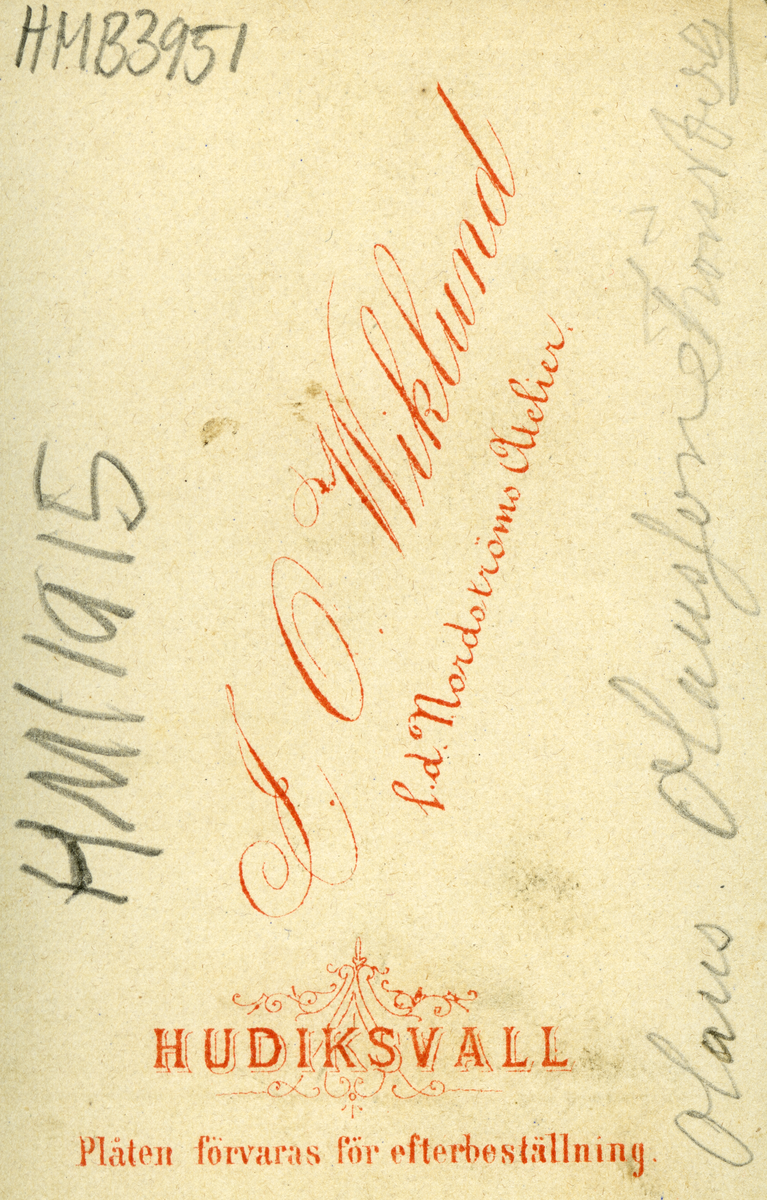 HMB3951
J. O. Wiklund
f.d. Nordströms Atelier.
HUDIKSVALL
Plåten förvaras för efterbeställning.
HM11915
Olaus Olausson